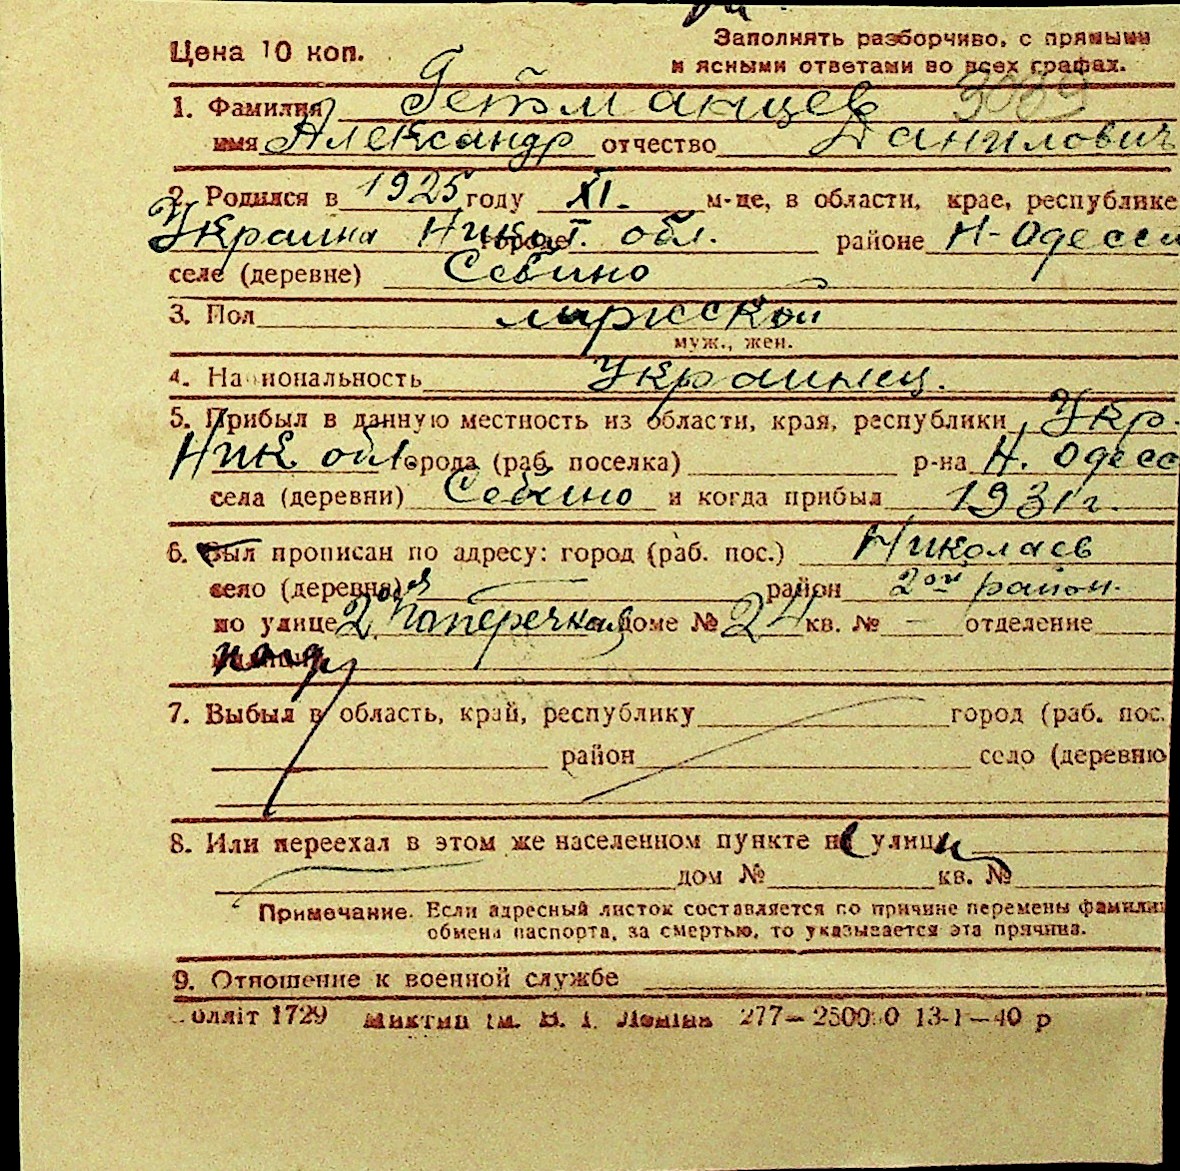 Цена 10 коп.
Заполнять разборчиво, с прямыми
и ясными ответами во всех графах.
3089
1. Фамилия Гетманцев
имя Александр отчество Данилович
2. Родился в 1925 году XI. м-це, в области, крае, республике
Украина Ник. обл. городе районе Н-Одесс
селе (деревне) Себино
3. Пол мужской
муж., жен.
4. Национальность Украинец.
5. Прибыл в данную местность из области, края, республики Укр.
Ник обл города (раб. поселка) р-на Н. Одесс
села (деревни) Себино и когда прибыл 1931 г.
6. Был прописан по адресу: город (раб. пос.) Николаев
село (деревня) район 2ой район.
по улице 2ая Поперечная доме № 24 кв. № — отделение
7. Выбыл в область, край, республику город (раб. пос.
район село (деревню
8. Или переехал в этом же населенном пункте на улицу
дом № кв. №
Примечание. Если адресный листок составляется по причине перемены фамилии
обмена паспорта, за смертью, то указывается эта причина.
9. Отношение к военной службе
оллiт 1729 iм. В. I. Ленiна 277—2500 0 13-1—40 р